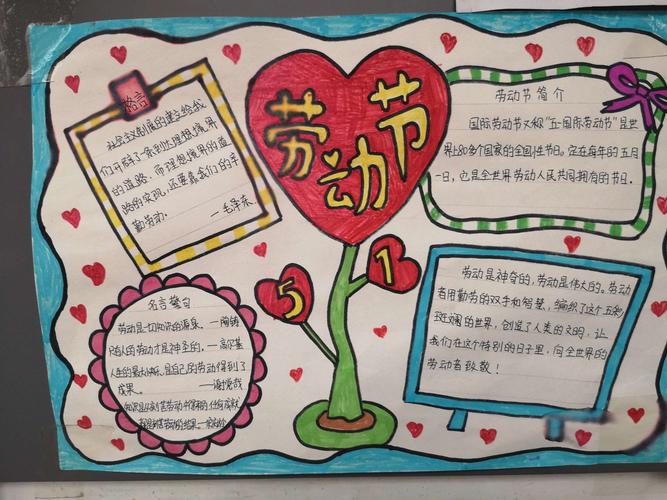 劳动节
5 1
格言
社会主义制度的建立给我
们开辟了一条到达理想境界
的道路,而理想境界的道
路的实现,还要靠我们的辛
勤劳动.
—毛泽东.
劳动节简介
国际劳动节又称"五一国际劳动节"是世
界上80多个国家的全国性节日。定在每年的五月
一日,它是全世界劳动人民共同拥有的节日.
名言警句
劳动是一切知识的源泉.—陶铸
只有人的劳动才是神圣的.—高尔基
人生的最大快乐,是自己的劳动得到了
成果。—谢觉哉
知识是从刻苦劳动中得来的,任何成就
劳动是神奇的,劳动是伟大的。劳动
者用勤劳的双手和智慧,编织了这个五彩
斑斓的世界,创造了人类的文明,让
我们在这个特别的日子里,向全世界的
劳动者致敬!